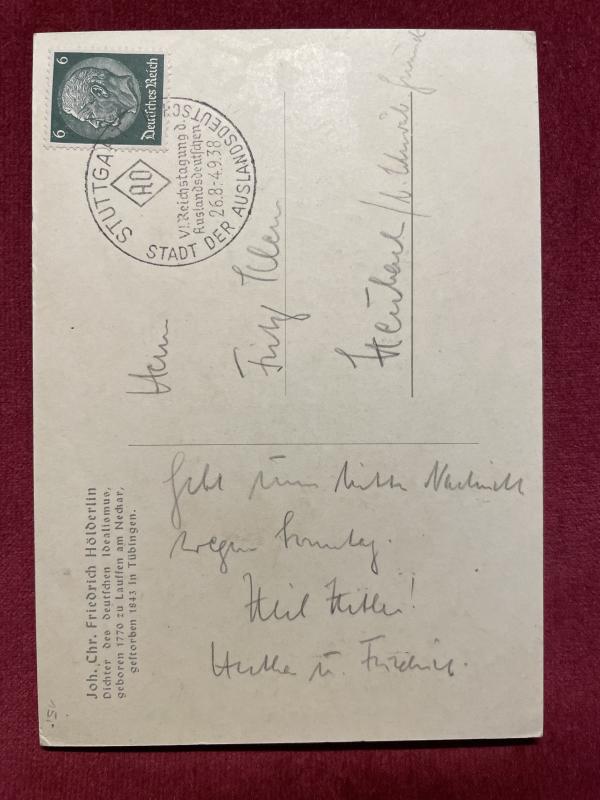 Joh. Chr. Friedrich Hölderlin
Dichter des deutschen Idealismus,
geboren 1770 zu Lauffen am Neckar,
gestorben 1843 in Tübingen.
6 6
Deutsches Reich
STUTTGA
STADT DER AUSLANDSDEUTSC
AO
VI. Reichstagung d.
Auslandsdeutschen
26.8.-4.9.38
Herrn
Fritz Klein
Heubach
Gebt uns bitte Nachricht
wegen Sonntag.
Heil Hitler!
u. Friedrich.